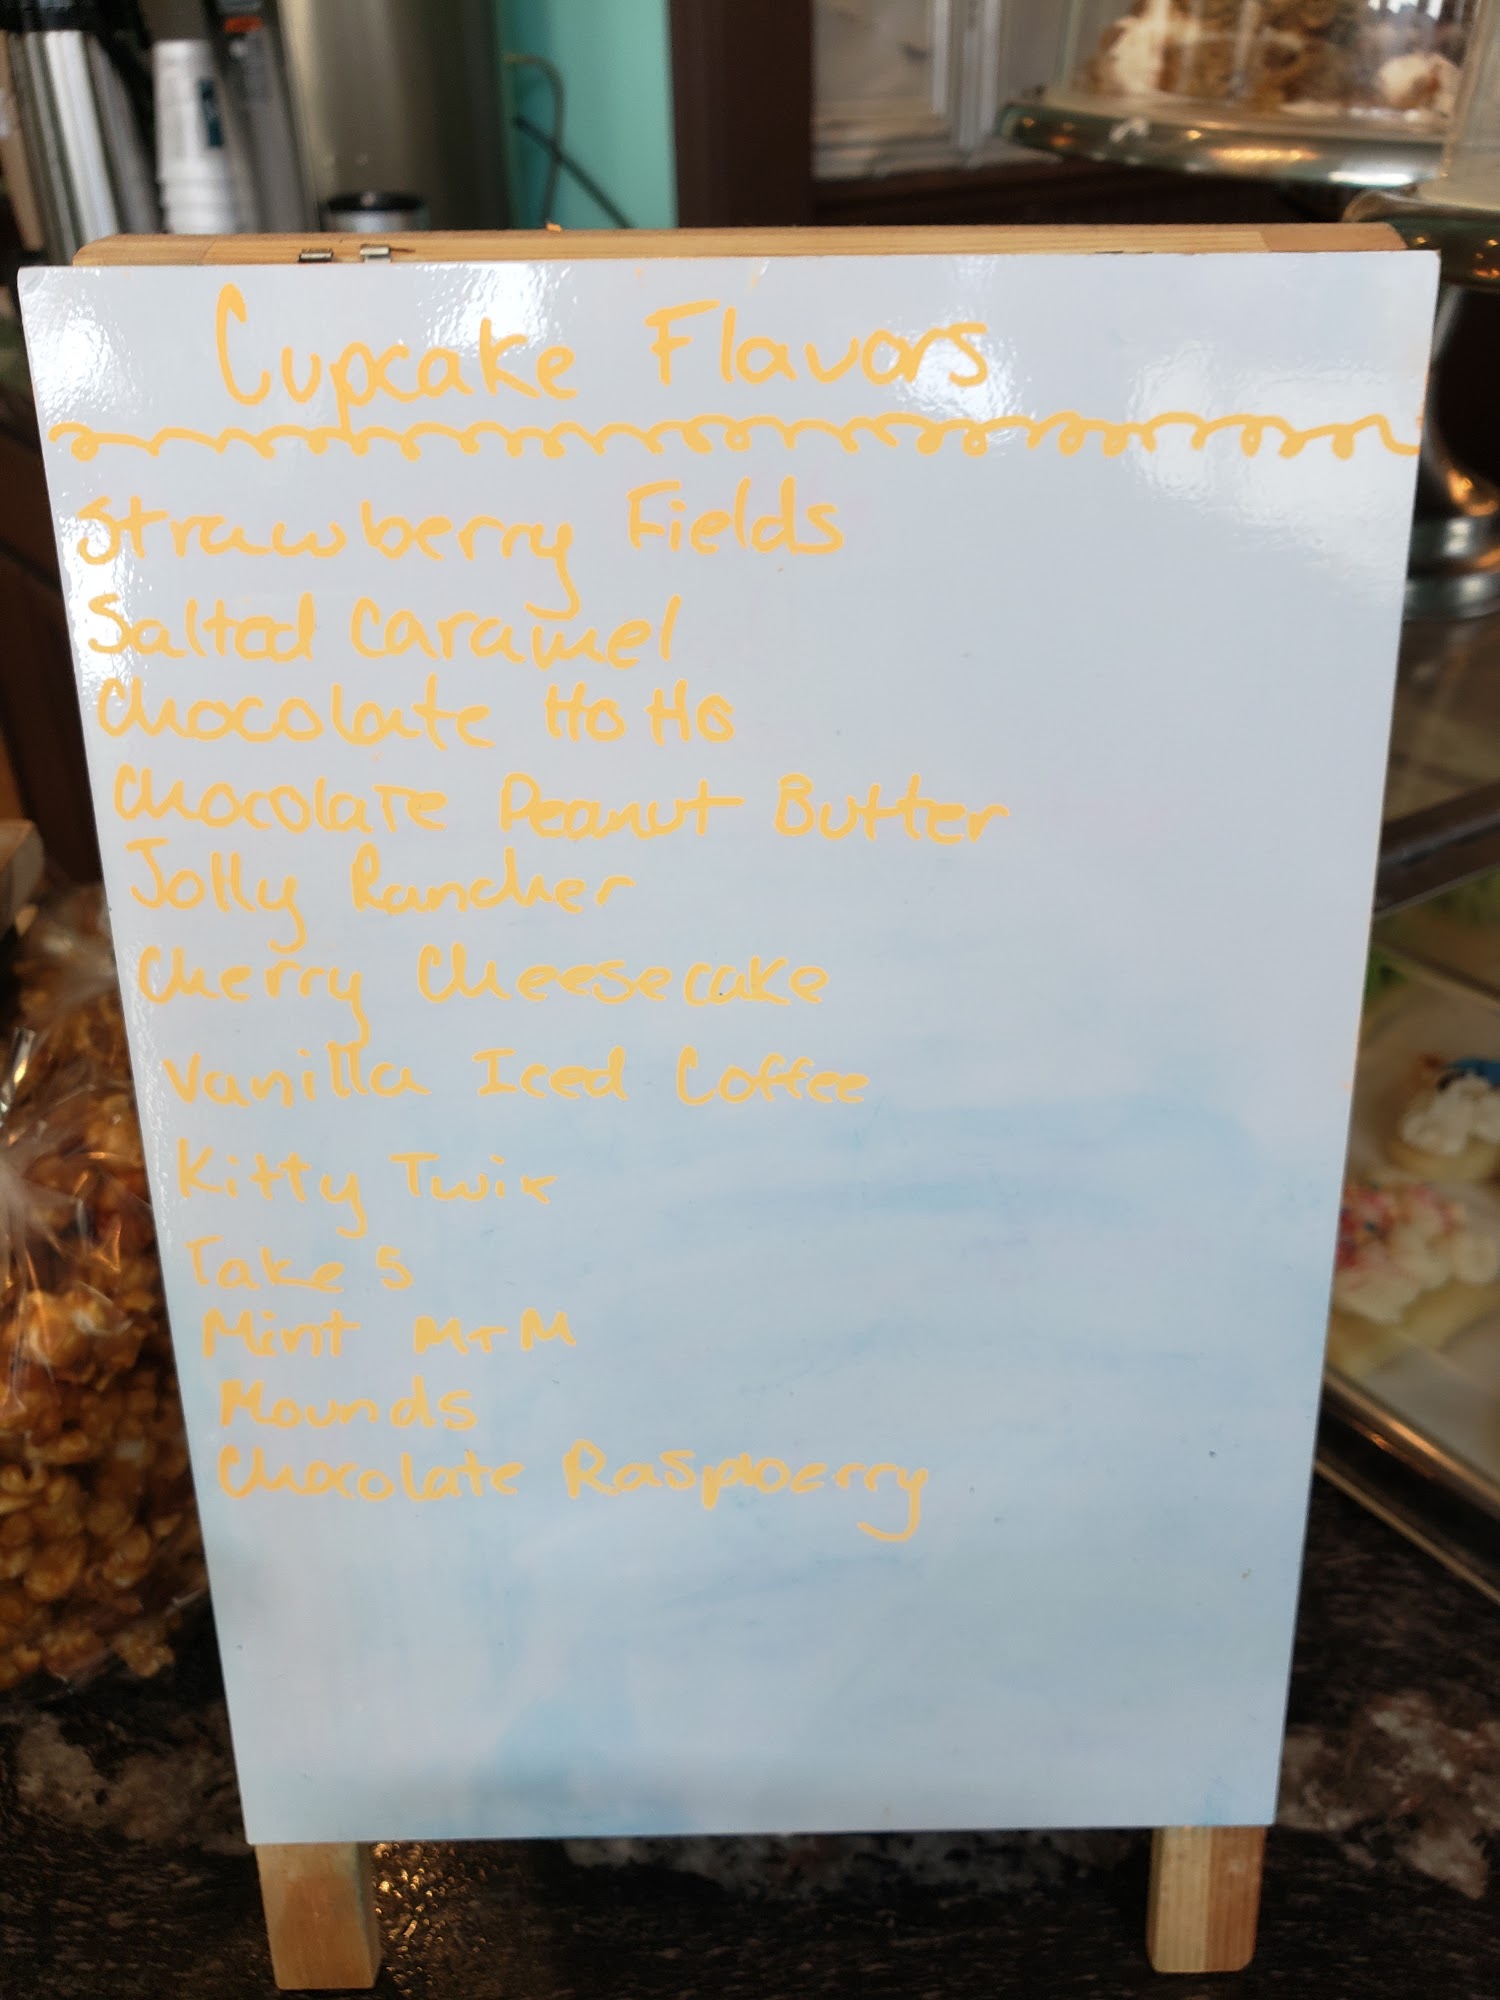 Cupcake Flavors
Strawberry Fields
Salted Caramel
Chocolate HoHo
Chocolate Peanut Butter
Jolly Rancher
Cherry Cheesecake
Vanilla Iced Coffee
Kitty Twix
Take 5
Mint M+M
Mounds
Chocolate Raspberry